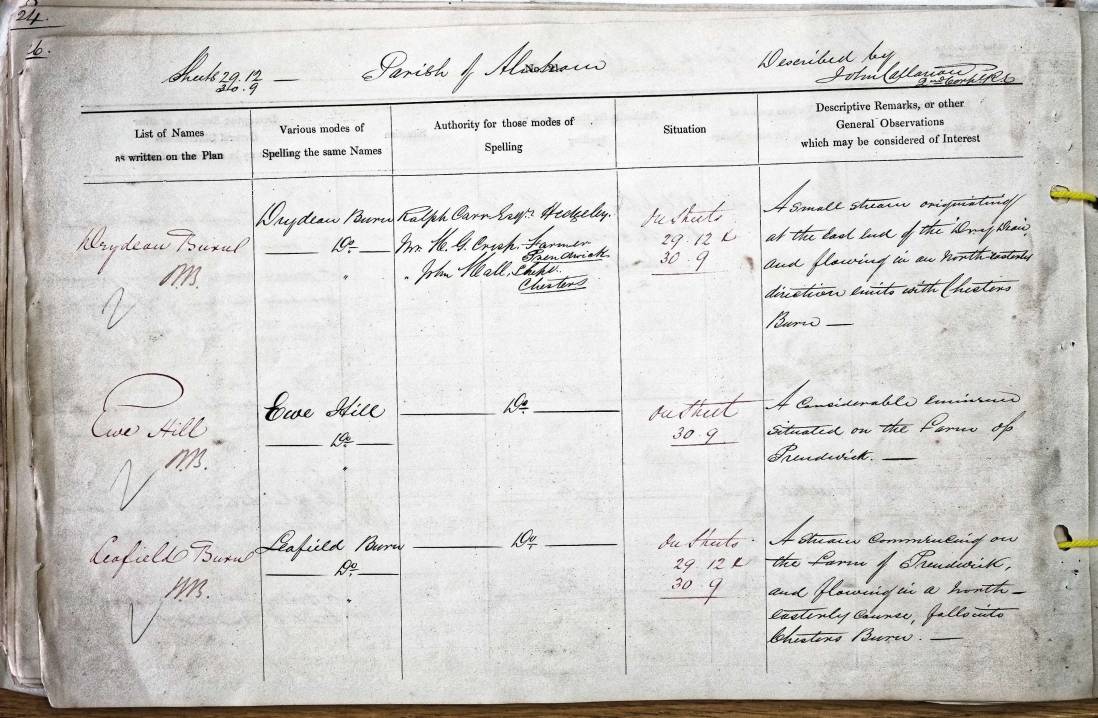 24.
26.
Sheets 29.12 — Parish of Alnham Described by
30.9 John Callanan
2nd Corpl R.E.
List of Names
as written on the Plan
Various modes of
Spelling the same Names
Authority for those modes of
Spelling
Situation
Descriptive Remarks, or other
General Observations
which may be considered of Interest
Drydean Burn
Drydean Burn
Do
"
Ralph Carr Esqre. Hedgeley.
Mr. H. G. Crisp. Farmer
Prendwick
" John Hall, Shepd.
Chesters
On Sheets
29.12 &
30.9
A Small Stream originating
at the East end of the Dry Dean,
and flowing in an North easterly
direction unites with Chesters
Burn —
Ewe Hill
Ewe Hill
Do
"
Do
On Sheet
30.9
A Considerable eminence
Situated on the Farm of
Prendwick. —
Leafield Burn
Leafield Burn
Do
"
Do
On Sheets
29.12 &
30.9
A Stream Commencing on
the Farm of Prendwick,
and flowing in a North–
easterly Course, falls into
Chesters Burn. —